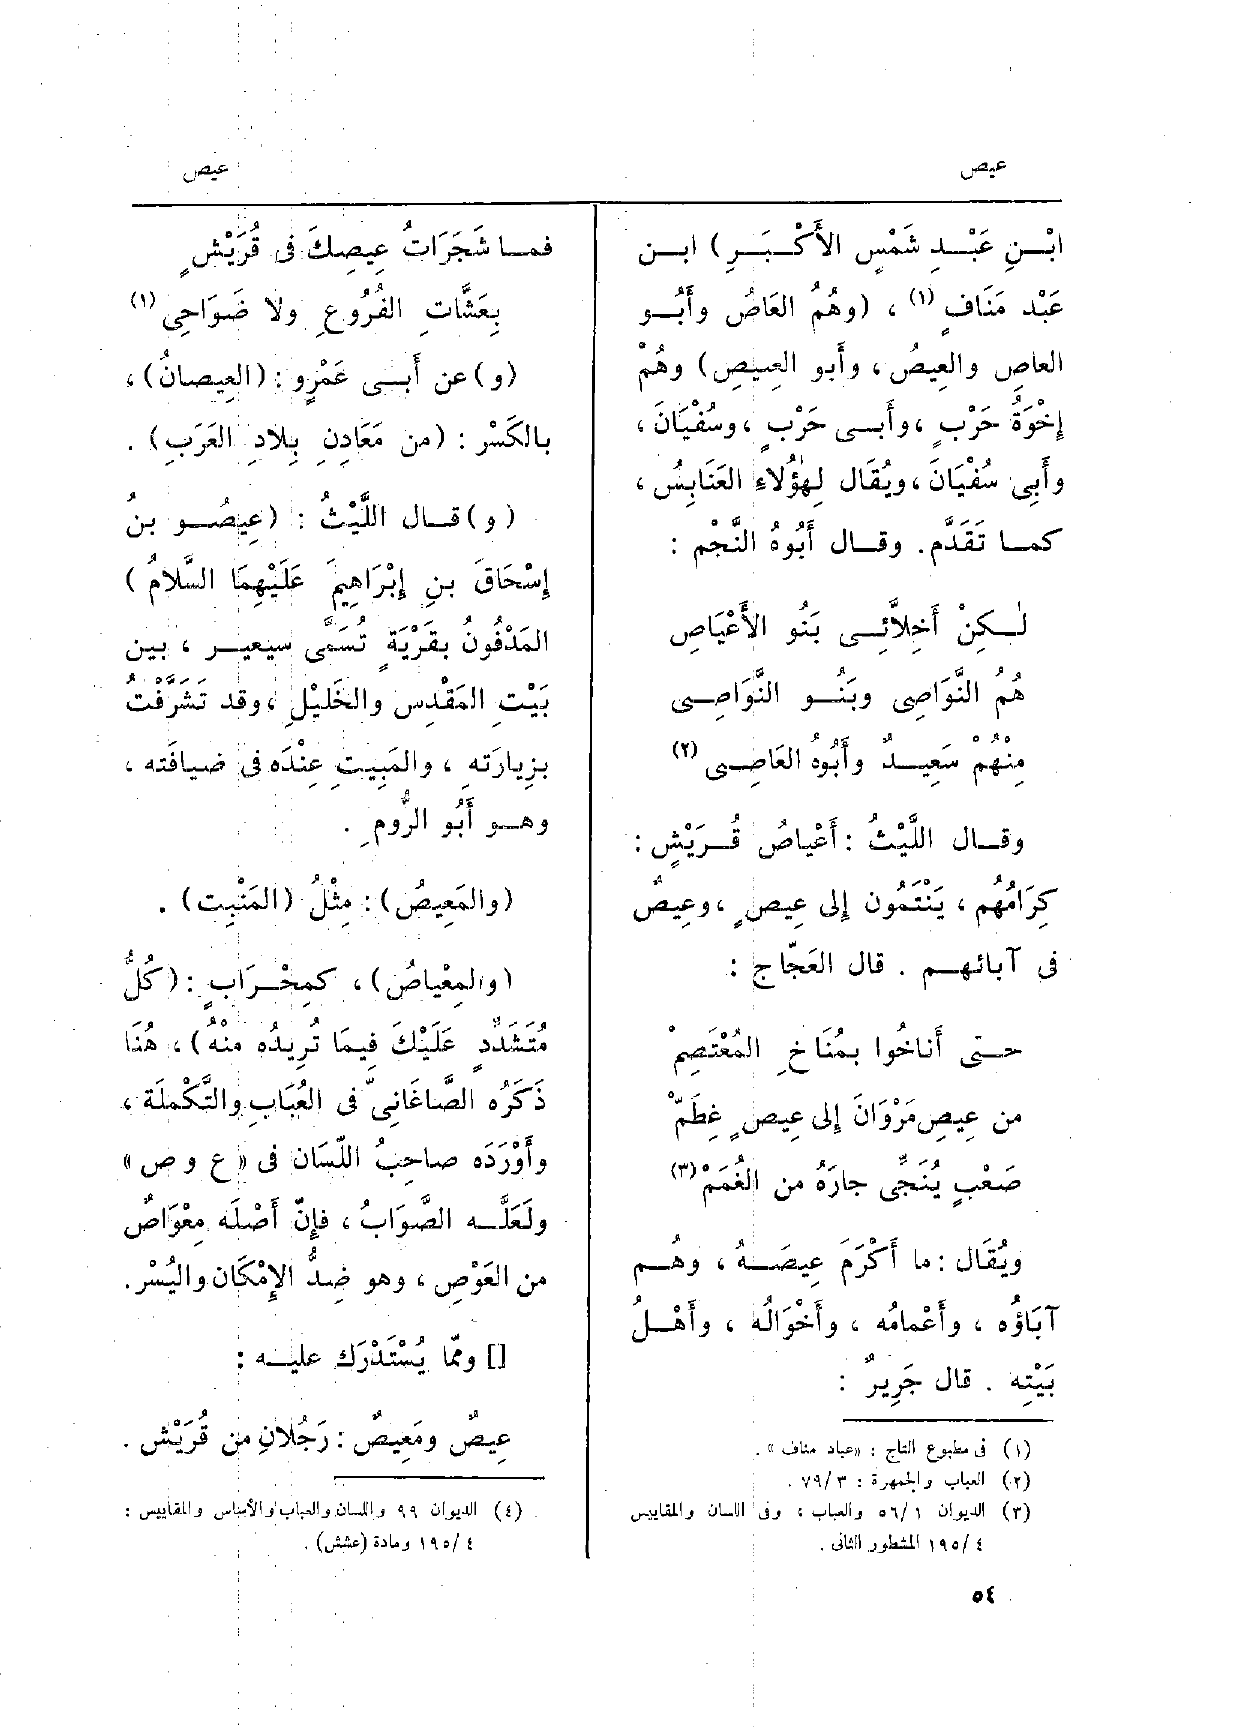 عيص
عيص
ابْنِ عَبْدِ شَمْسٍ الأَكْبَرِ) ابن
عَبْد مَنَافٍ (١) ، (وهُمُ العَاصُ وأَبُو
العاصِ والعِيصُ ، وأَبو العِيصِ) وهُمْ
إِخْوَةُ حَرْبٍ ، وأَبِى حَرْبٍ ، وسُفْيَانَ ،
وأَبِى سُفْيَانَ ، ويُقَال لِهٰؤُلاءِ العَنَابِسُ ،
كما تَقَدَّم . وقال أَبُوهُ النَّجْم :
لٰكِنْ أَخِلاَّئِى بَنُو الأَعْيَاصِ
هُمُ النَّوَاصِى وبَنُو النَّوَاصِى
مِنْهُمْ سَعِيدٌ وأَبُوهُ العَاصِى (٢)
وقال اللَّيْثُ : أَعْيَاصُ قُرَيْشٍ :
كِرَامُهُم ، يَنْتَمُون إِلى عِيصٍ ، وعِيصٌ
فى آبائهم . قال العَجّاج :
حتى أَناخُوا بمُنَاخِ المُعْتَصِمْ
من عِيصِ مَرْوَانَ إِلى عِيصٍ غِطَمّْ
صَعْبٍ يُنَجِّى جارَهُ من الغُمَمْ (٣)
ويُقَال : ما أَكْرَمَ عِيصَهُ ، وهُم
آبَاؤُه ، وأَعْمامُه ، وأَخْوَالُه ، وأَهْلُ
بَيْتِه . قال جَرِيرٌ :
(١) فى مطبوع التاج : «عباد مناف» .
(٢) العباب والجمهرة : ٣ /٧٩ .
(٣) الديوان ١ /٥٦ والعباب ، وفى اللسان والمقاييس
٤ /١٩٥ المشطور الثانى .
فما شَجَرَاتُ عِيصِكَ فى قُرَيْشٍ
بِعَشَّاتِ الفُرُوعِ ولا ضَوَاحِى (١)
(و) عن أَبِى عَمْرٍو : (العِيصانُ) ،
بالكَسْر : (من مَعَادِنِ بِلادِ العَرَبِ) .
(و) قال اللَّيْثُ : (عِيصُو بنُ
إِسْحَاقَ بنِ إِبْرَاهِيمَ عَلَيْهِمَا السَّلامُ)
المَدْفُونُ بقَرْيَةٍ تُسَمَّى سيعير ، بين
بَيْتِ المَقْدِس والخَلِيْلِ ، وقد تَشَرَّفْتُ
بزِيارَتهِ ، والمَبِيتِ عِنْدَه فى ضيافَته ،
وهو أَبُو الرُّومِ .
(والمَعِيصُ) : مِثْلُ (المَنْبِت) .
(والمِعْياصُ) ، كمِحْرَابٍ : (كُلُّ
مُتَشَدِّدٍ عَلَيْكَ فيمَا تُرِيدُه منْهُ) ، هُنَا
ذَكَرَه الصّاغَانِىّ فى العُبَابِ والتَّكْمِلَة ،
وأَوْرَدَه صاحِبُ اللِّسَان فى «ع و ص»
ولَعَلَّه الصَّوَابُ ، فإِنّ أَصْلَه مِعْوَاصٌ
من العَوْصِ ، وهو ضِدُّ الإِمْكَان واليُسْر .
[] وممّا يُسْتَدْرَك عليه :
عِيصٌ ومَعِيصٌ : رَجُلانِ من قُرَيْش .
(٤) الديوان ٩٩ واللسان والعباب والأساس والمقاييس :
٤ /١٩٥ ومادة (عشش) .
٥٤